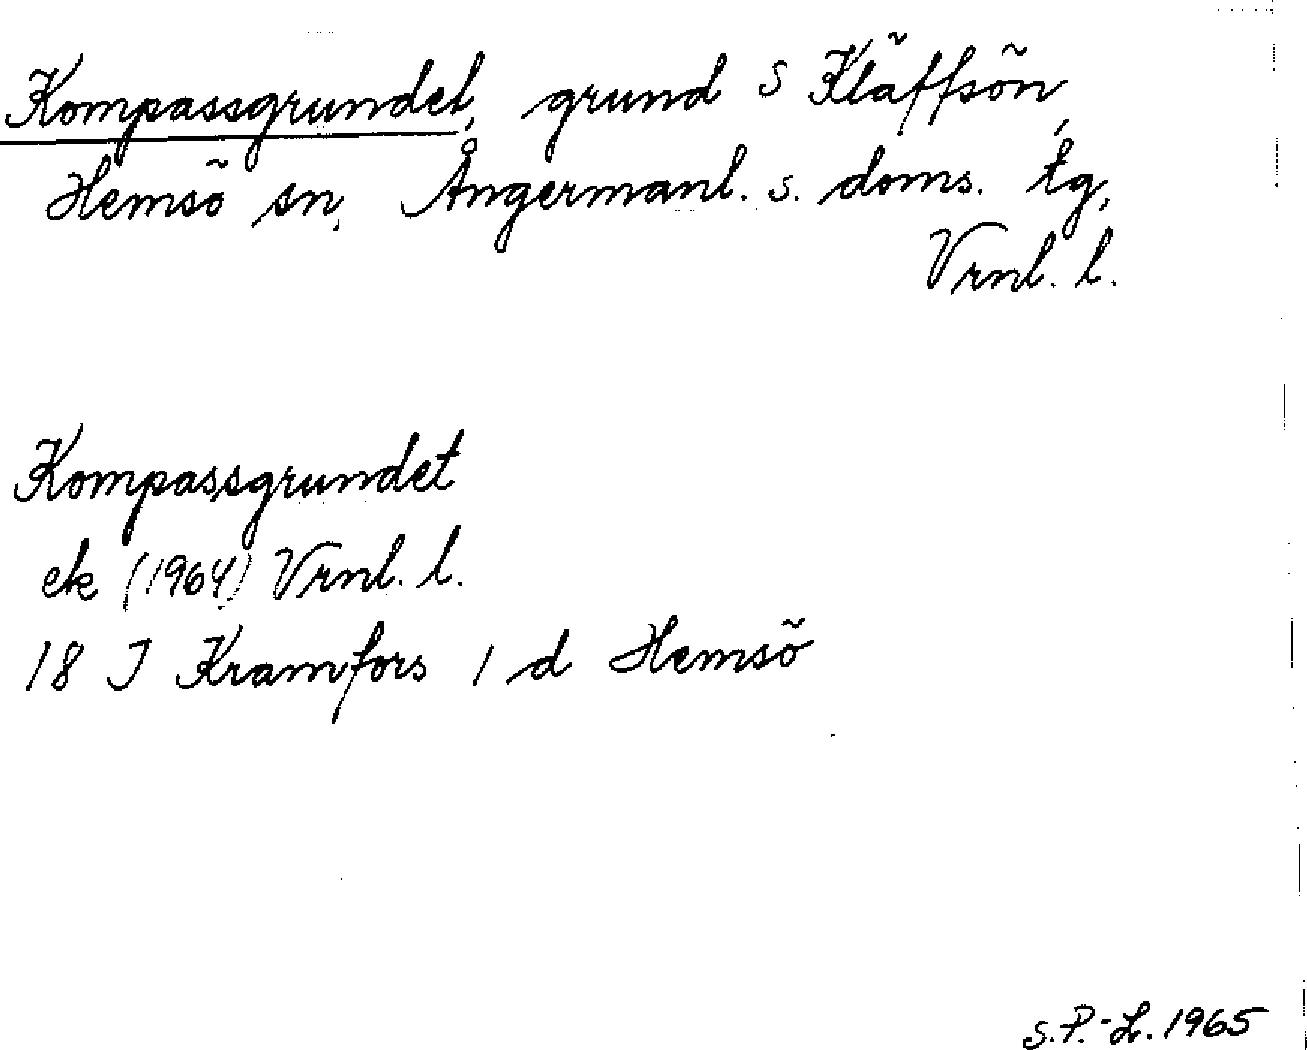 Kompassgrundet, grund s Kläffsön,
Hemsö sn, Ångermanl. s. doms. tg,
Vrnl. l.
Kompassgrundet
ek (1964) Vrnl. l.
18 J Kramfors 1 d Hemsö
S.P.-L. 1965